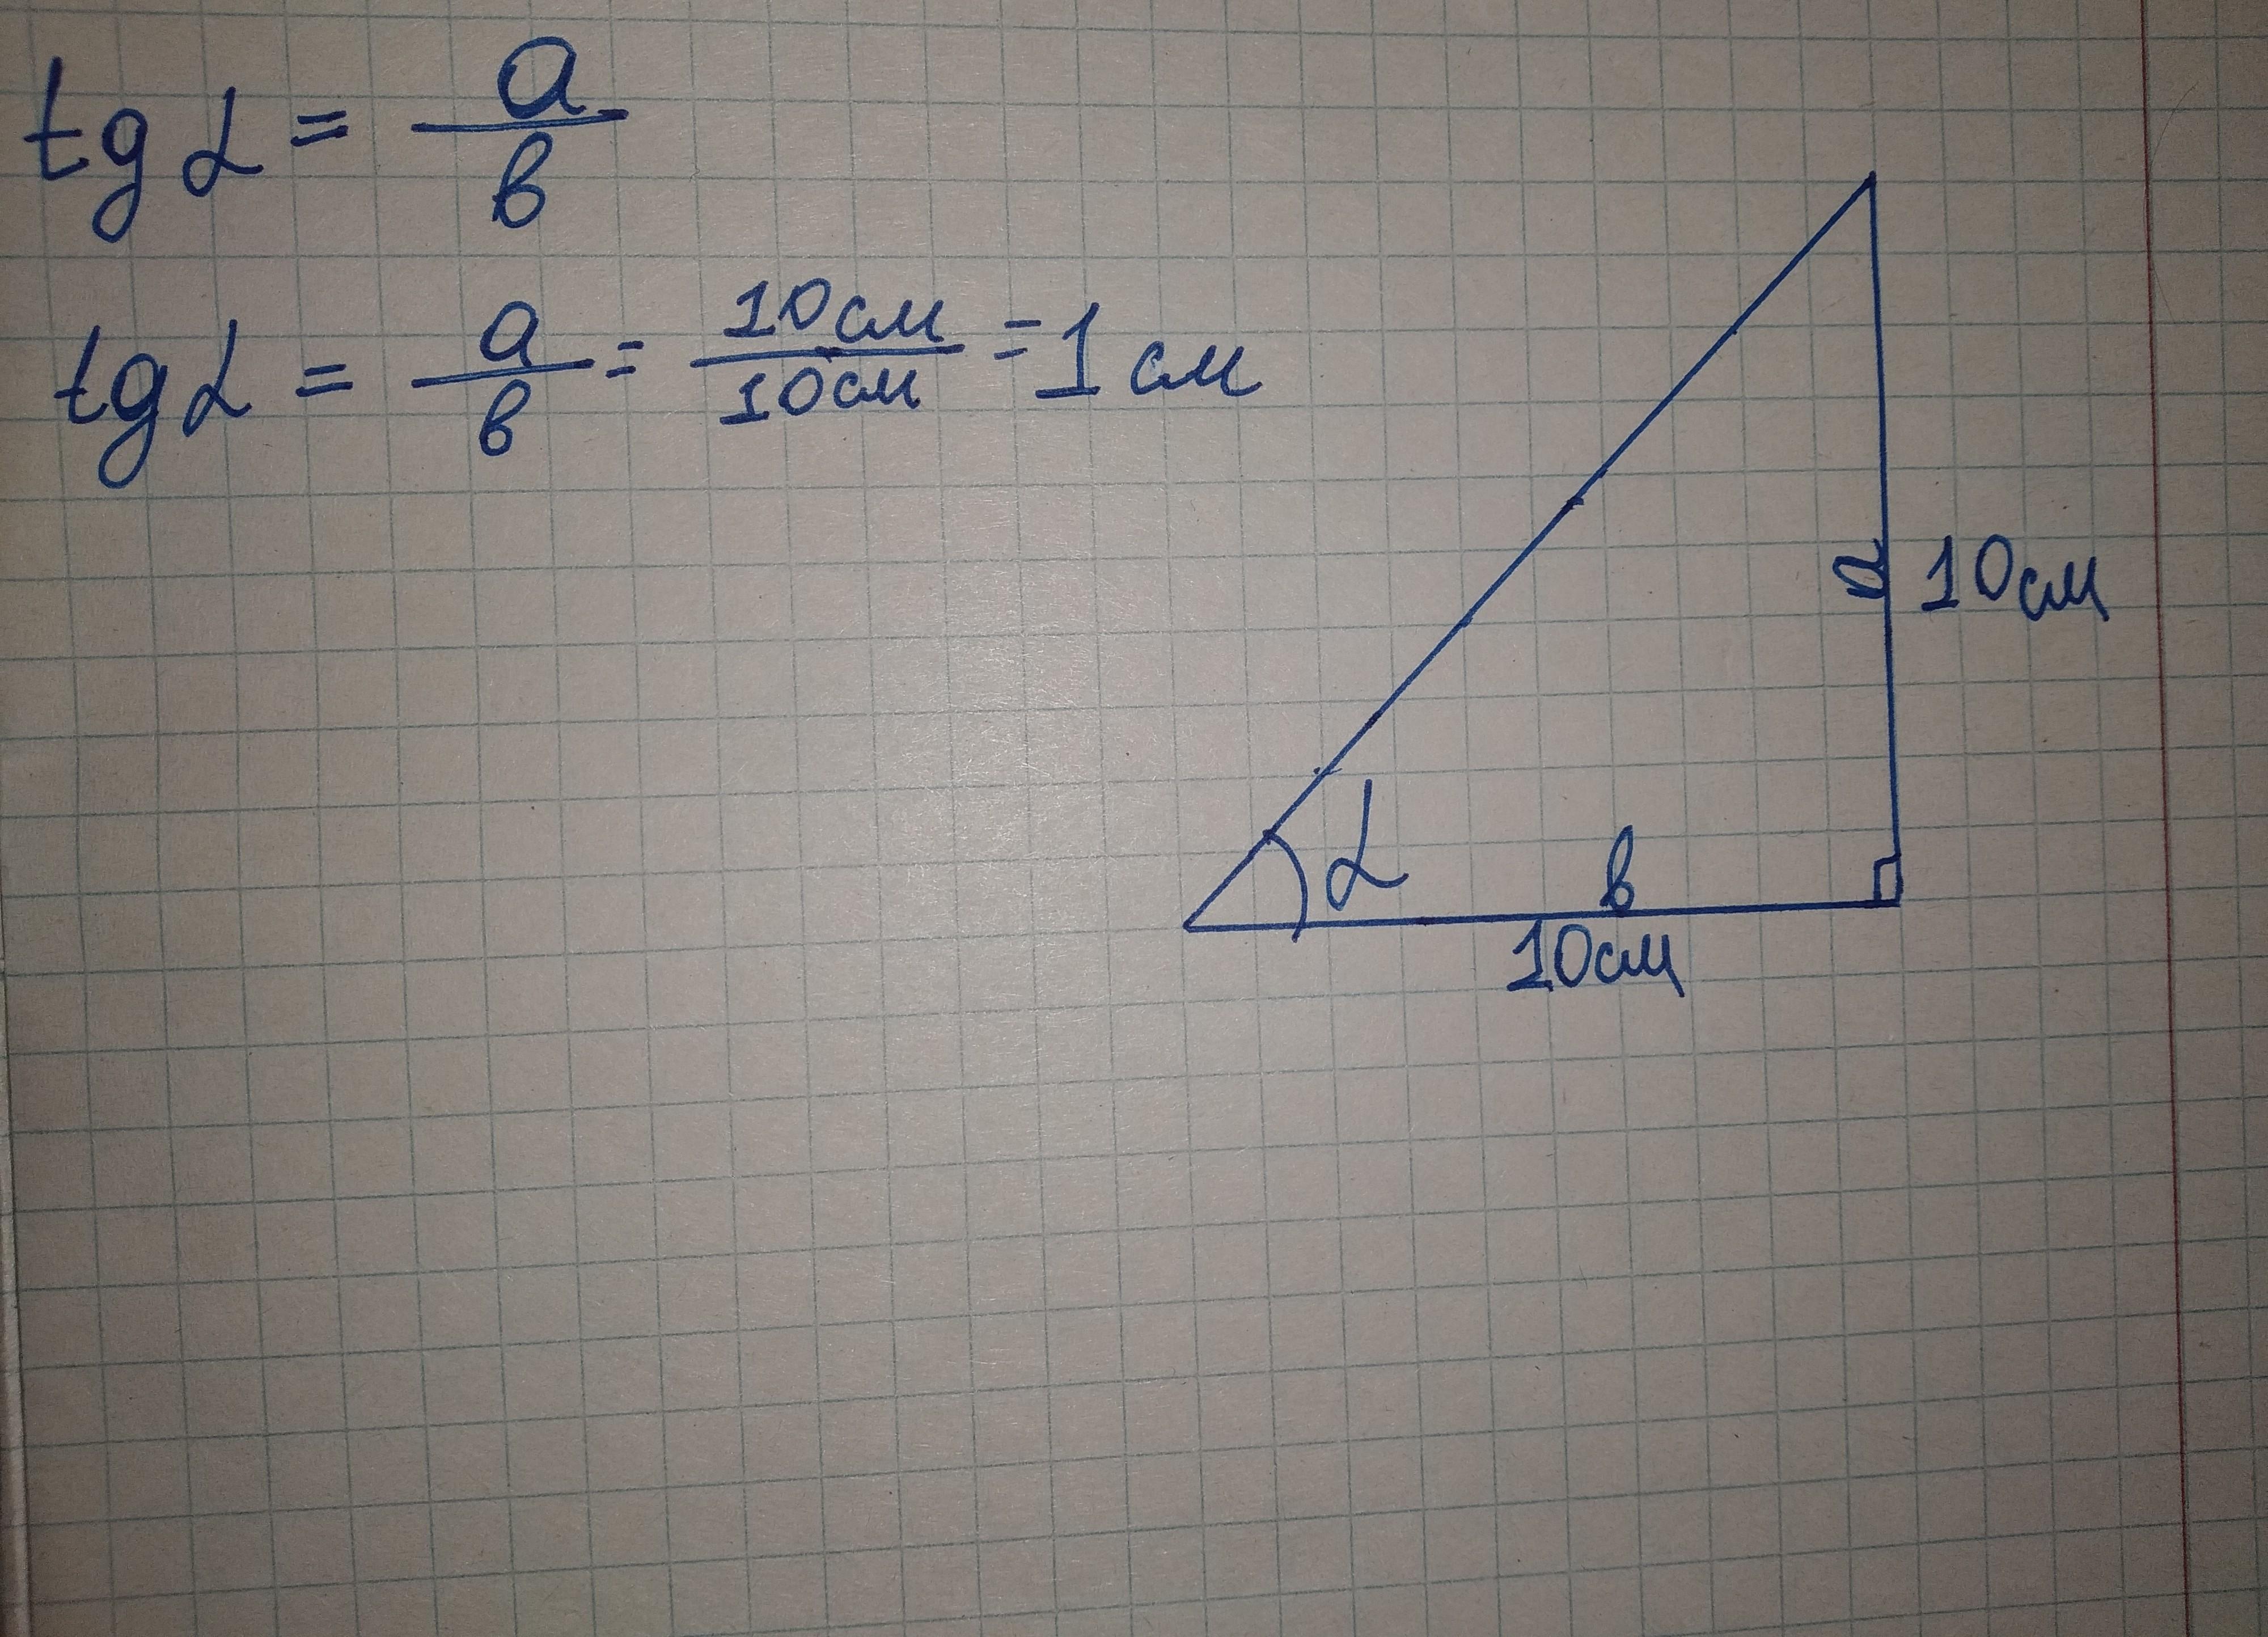 tg α = a/в
tg α = a/в = 10см/10см = 1 см
a 10см
α в
10см